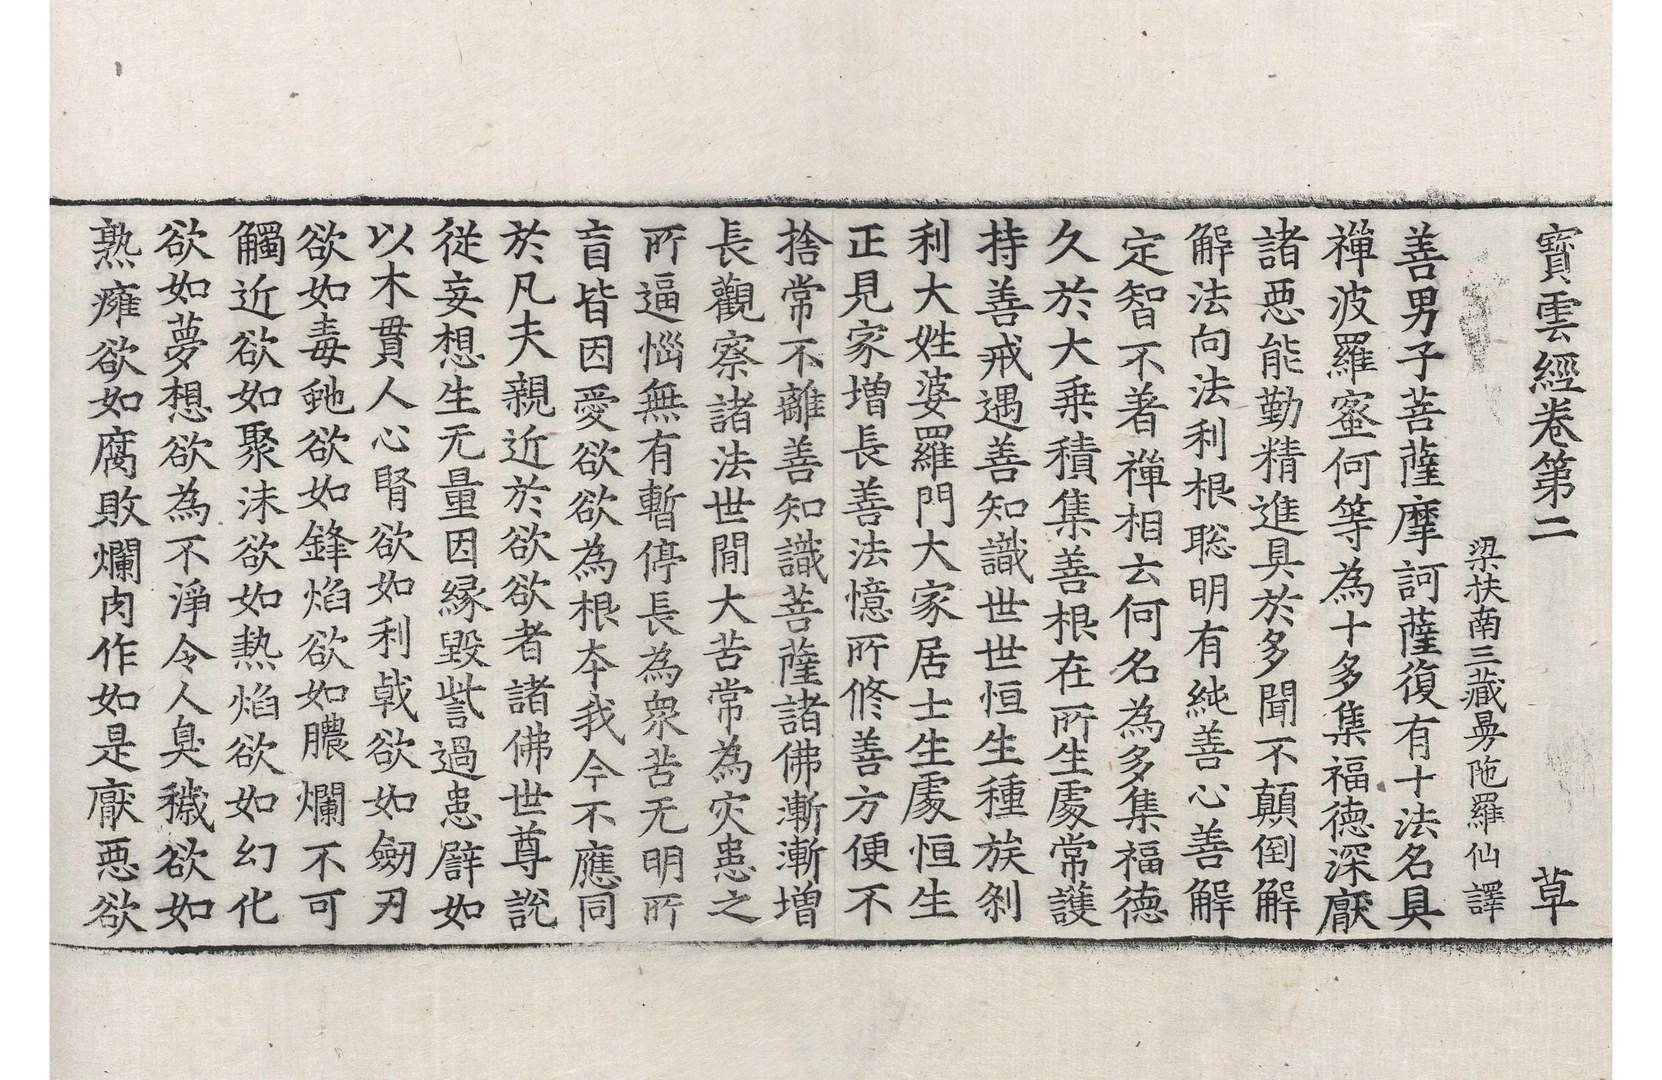 寶雲經卷第二 草
梁扶南三藏曼陁羅仙譯
善男子菩薩摩訶薩復有十法名具
禪波羅蜜何等為十多集福德深厭
諸惡能勤精進具於多聞不顛倒解
解法向法利根聡明有純善心善解
定智不著禪相云何名為多集福德
久於大乗積集善根在所生處常護
持善戒遇善知識世世恒生種族剎
利大姓婆羅門大家居士生處恒生
正見家增長善法憶所修善方便不
捨常不離善知識菩薩諸佛漸漸增
長觀察諸法世閒大苦常為灾患之
所逼惱無有暫停長為衆苦无明所
盲皆因愛欲欲為根夲我今不應同
於凡夫親近於欲欲者諸佛世尊說
從妄想生无量因縁毀訾過患譬如
以木貫人心腎欲如利戟欲如劒刃
欲如毒虵欲如鋒焰欲如膿爛不可
觸近欲如聚沫欲如熱焰欲如幻化
欲如夢想欲為不淨令人臭穢欲如
熟癰欲如腐敗爛肉作如是厭惡欲